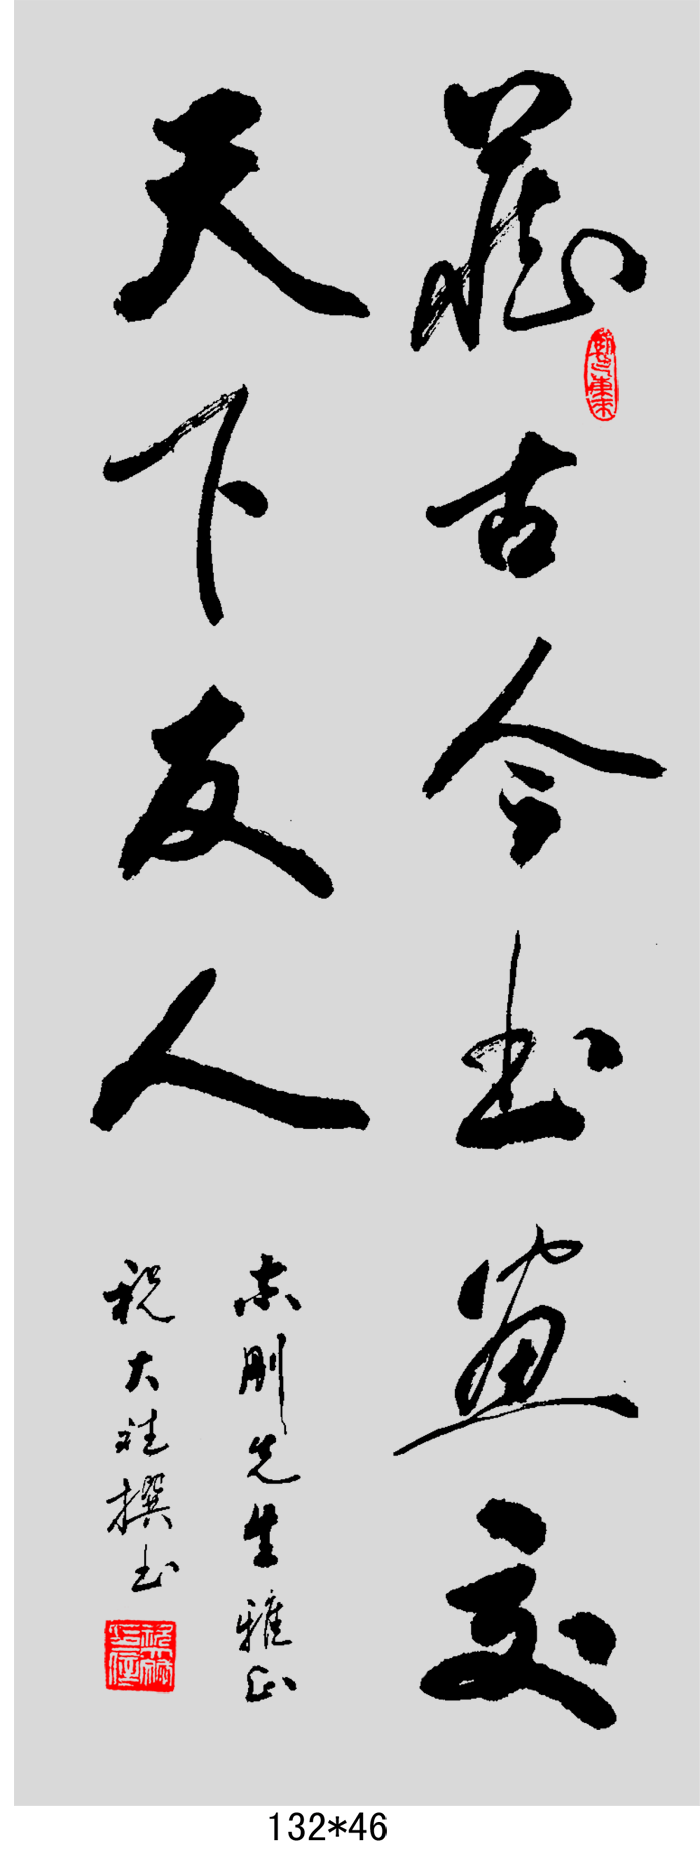 藏古今书画交
天下友人
志刚先生雅正
祝大祥撰书
132*46